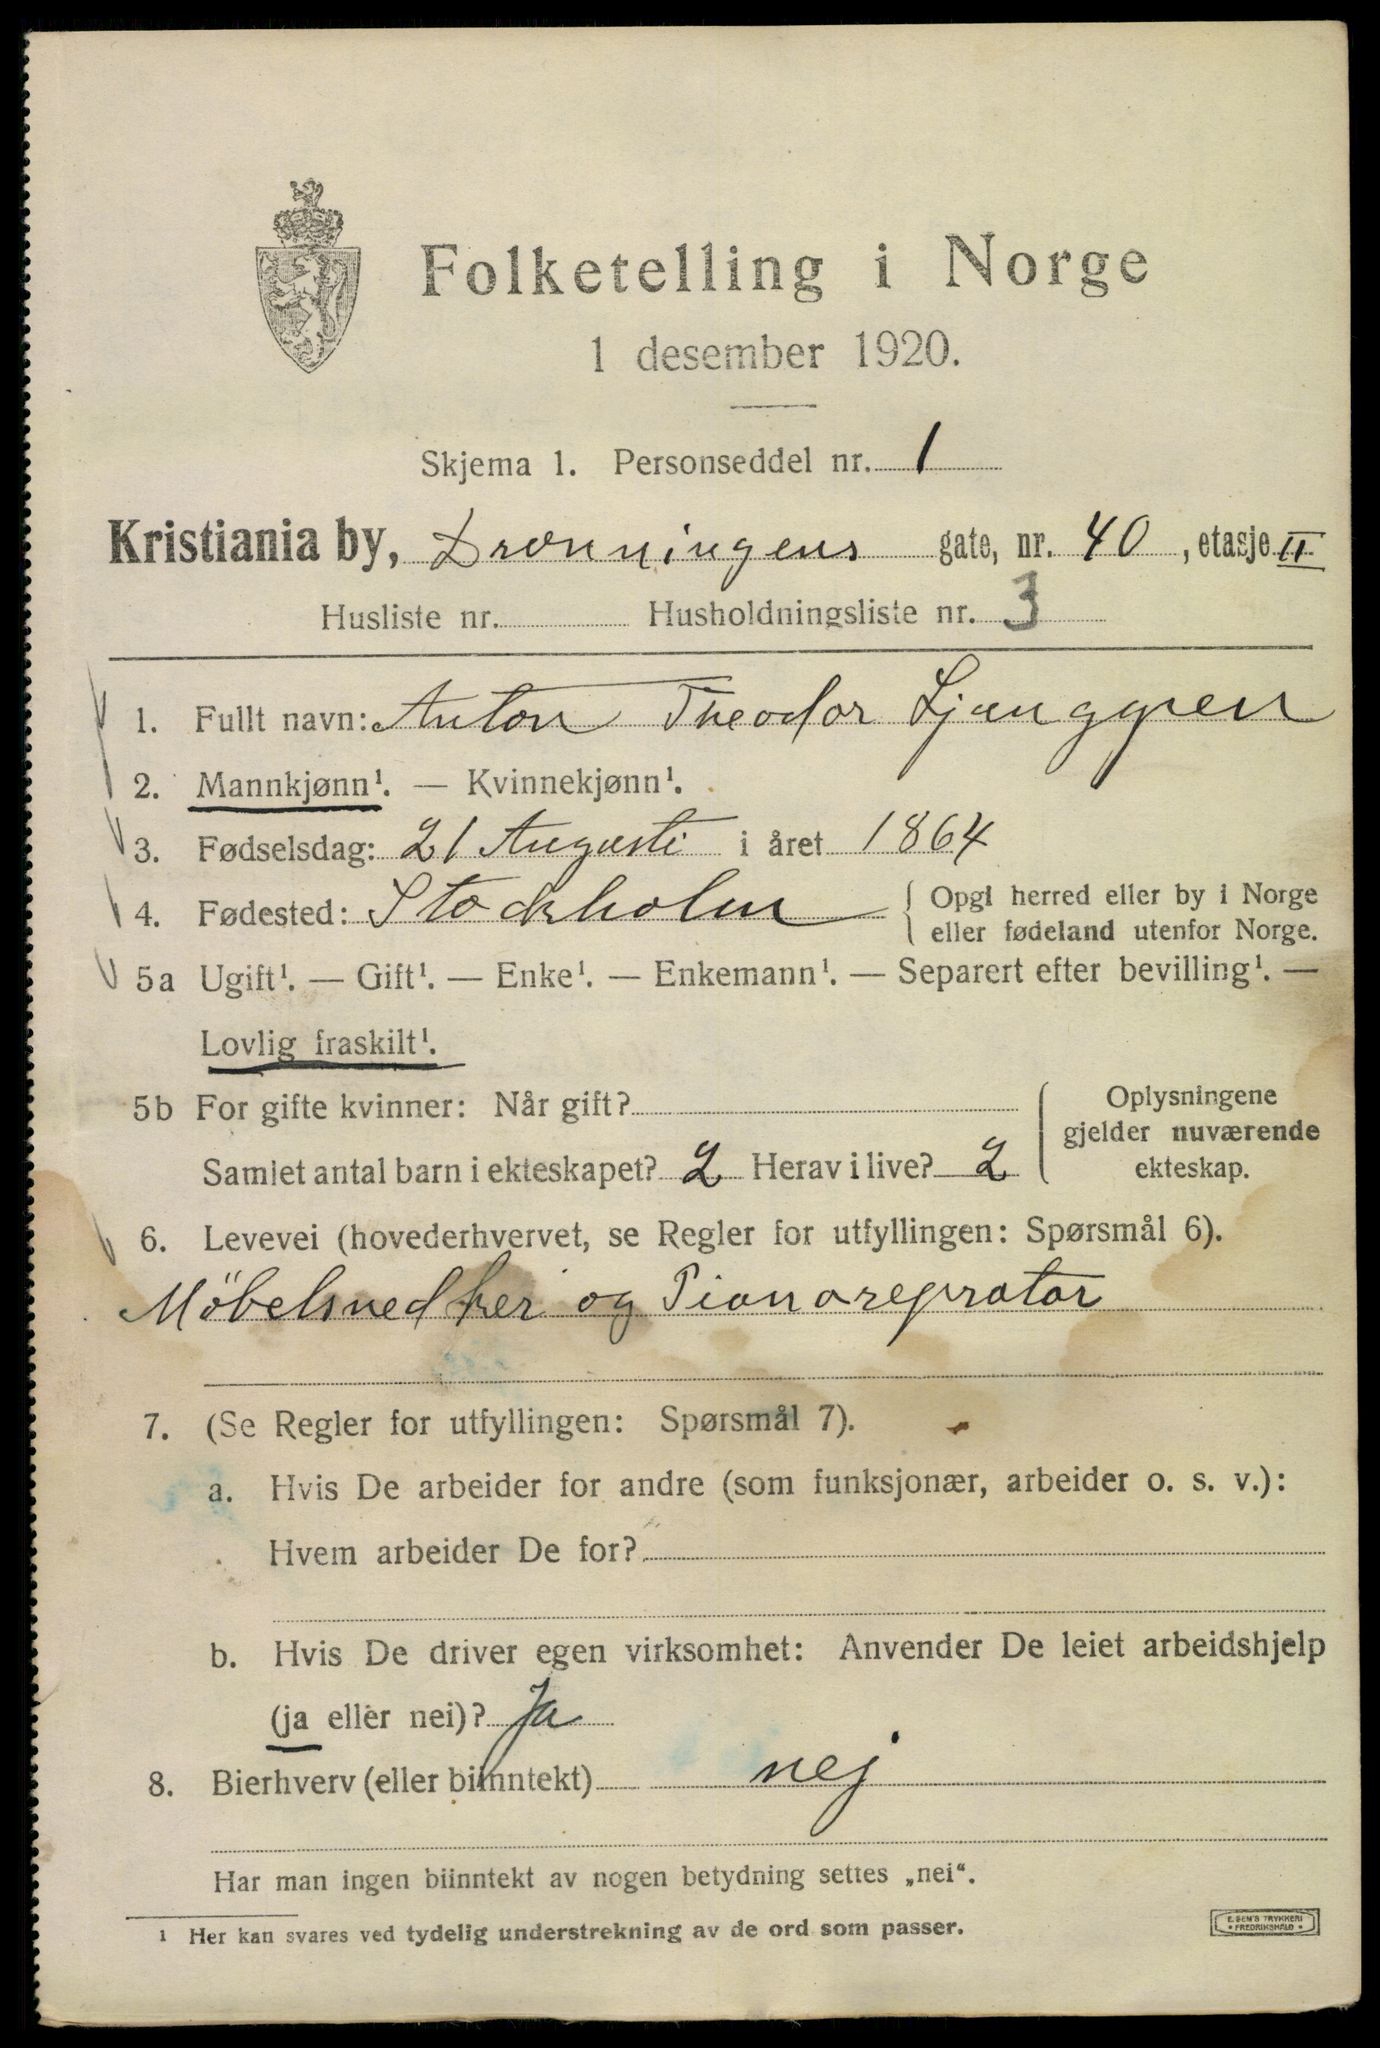 Folketelling i Norge
1 desember 1920.
Skjema 1. Personseddel nr. 1
Kristiania by, Dronningens gate, nr. 40, etasje II
Husliste nr. Husholdningsliste nr. 3
1. Fullt navn: Anton Theodor Ljunggren
2. Mannkjønn¹. — Kvinnekjønn¹.
3. Fødselsdag: 21 Augusti i året 1864
4. Fødested: Stockholm { Opgi herred eller by i Norge
eller fødeland utenfor Norge.
5a Ugift¹. — Gift¹. — Enke¹. — Enkemann¹. — Separert efter bevilling¹. —
Lovlig fraskilt¹.
5b For gifte kvinner: Når gift?
Samlet antal barn i ekteskapet? 2 Herav i live? 2
Oplysningene
gjelder nuværende
ekteskap.
6. Levevei (hovederhvervet, se Regler for utfyllingen: Spørsmål 6).
Möbelsnedker og Pianoreprator
7. (Se Regler for utfyllingen: Spørsmål 7).
a. Hvis De arbeider for andre (som funksjonær, arbeider o. s. v.):
Hvem arbeider De for?
b. Hvis De driver egen virksomhet: Anvender De leiet arbeidshjelp
(ja eller nei)? Ja
8. Bierhverv (eller biinntekt) nej
Har man ingen biinntekt av nogen betydning settes „nei“.
¹ Her kan svares ved tydelig understrekning av de ord som passer.
E. SEM'S TRYKKERI
• FREDRIKSHALD •